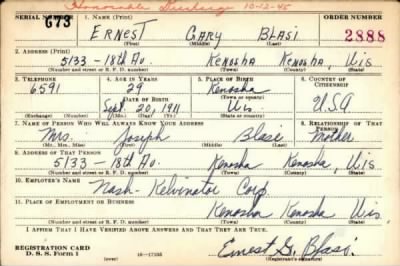 Honorable Discharge 10-12-45
SERIAL NUMBER 1. NAME (Print) ORDER NUMBER
G73 ERNEST GARY BLASI 2888
(First) (Middle) (Last)
2. ADDRESS (Print)
5133-18th Av. Kenosha Kenosha, Wis
(Number and street or R. F. D. number) (Town) (County) (State)
3. TELEPHONE 4. AGE IN YEARS 5. PLACE OF BIRTH 6. COUNTRY OF CITIZENSHIP
6591 29 Kenosha
DATE OF BIRTH (Town or county)
Sept. 20, 1911 Wis. U.S.A
(Exchange) (Number) (Mo.) (Day) (Yr.) (State or country)
7. NAME OF PERSON WHO WILL ALWAYS KNOW YOUR ADDRESS 8. RELATIONSHIP OF THAT PERSON
Mrs. Joseph Blasi Mother
(Mr., Mrs., Miss) (First) (Middle) (Last)
9. ADDRESS OF THAT PERSON
5133-18th Av. Kenosha Kenosha, Wis
(Number and street or R. F. D. number) (Town) (County) (State)
10. EMPLOYER'S NAME
Nash-Kelvinator Corp
11. PLACE OF EMPLOYMENT OR BUSINESS
Kenosha Kenosha Wis.
(Number and street or R. F. D. number) (Town) (County) (State)
I AFFIRM THAT I HAVE VERIFIED ABOVE ANSWERS AND THAT THEY ARE TRUE.
REGISTRATION CARD
D. S. S. Form 1 Ernest G. Blasi
(Registrant's signature)